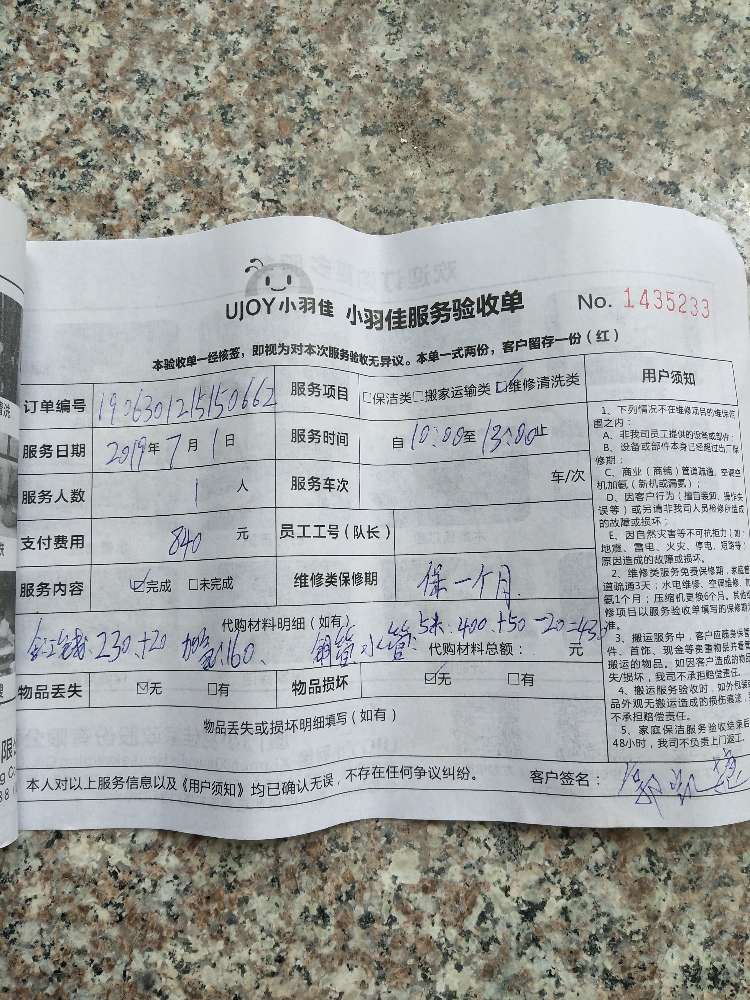 UJOY小羽佳 小羽佳服务验收单 No. 1435233
本验收单一经核签，即视为对本次服务验收无异议。本单一式两份，客户留存一份（红）
订单编号 1906301215150662 服务项目 □保洁类□搬家运输类☑维修清洗类
服务日期 2019年7月1日 服务时间 自10:00至13:00止
服务人数 1人 服务车次 车/次
支付费用 840元 员工工号（队长）
服务内容 ☑完成 □未完成 维修类保修期 保一个月
代购材料明细（如有）
230+20 160、 钢管 水管：5米 400+50-20=43
代购材料总额： 元
物品丢失 ☑无 □有 物品损坏 ☑无 □有
物品丢失或损坏明细填写（如有）
本人对以上服务信息以及《用户须知》均已确认无误，不存在任何争议纠纷。 客户签名：
用户须知
1、下列情况不在维修项目的维保范
围之内：
A、非我司员工提供的设备或部件；
B、设备或部件本身已经超过出厂保
修期；
C、商业（商铺）管道疏通、空调空
机加氨（新机或漏氨）；
D、因客户行为（擅自装卸、操作失
误等）或另请非我司人员检修所造成
的故障或损坏；
E、因自然灾害等不可抗拒力（如：
地燃、雷电、火灾、停电、短路等）
原因造成的故障或损坏。
2、维修类服务免费保修期，家庭管
道疏通3天；水电维修、空调维修、
氨1个月；压缩机更换6个月。其他
修项目以服务验收单填写的保修期
准。
3、搬运服务中，客户应随身保管
件、首饰、现金等贵重物品并看管
搬运的物品。如因客户造成的物品
失/损坏，我司不承担赔偿责任。
4、搬运服务验收时，如外包装
品外观无搬运造成的损伤痕迹，
不承担赔偿责任。
5、家庭保洁服务验收结束后
48小时，我司不负责上门返工。